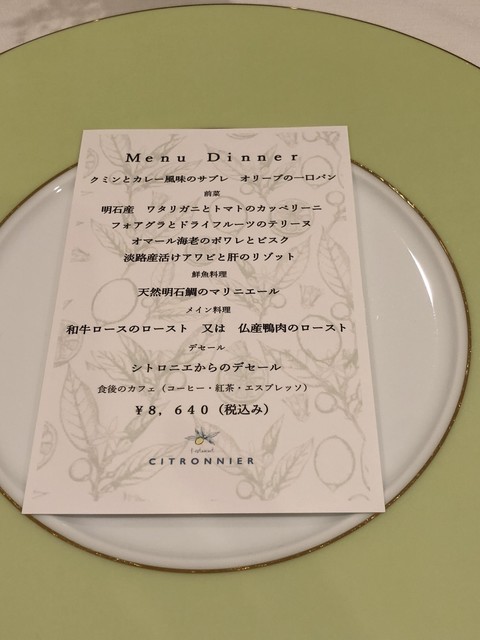 Menu Dinner
クミンとカレー風味のサブレ　オリーブの一口パン
前菜
明石産　ワタリガニとトマトのカッペリーニ
フォアグラとドライフルーツのテリーヌ
オマール海老のポワレとビスク
淡路産活けアワビと肝のリゾット
鮮魚料理
天然明石鯛のマリニエール
メイン料理
和牛ロースのロースト　又は　仏産鴨肉のロースト
デセール
シトロニエからのデセール
食後のカフェ（コーヒー・紅茶・エスプレッソ）
￥8，640（税込み）
CITRONNIER